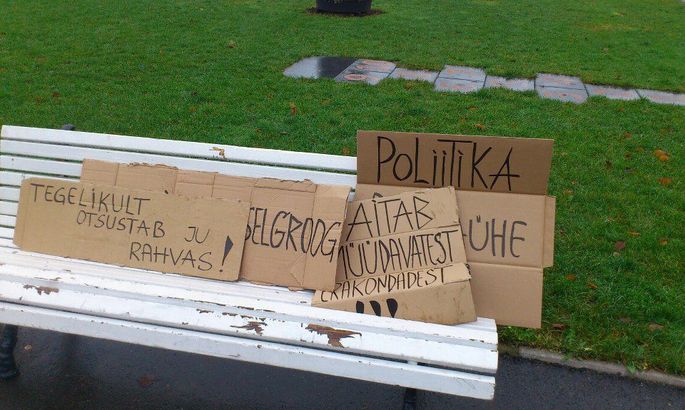 TEGELIKULT
OTSUSTAB JU
RAHVAS!
SELGROOG
AITAB
MÜÜDAVATEST
ERAKONDADEST
!!!
POLIITIKA
ÜHE